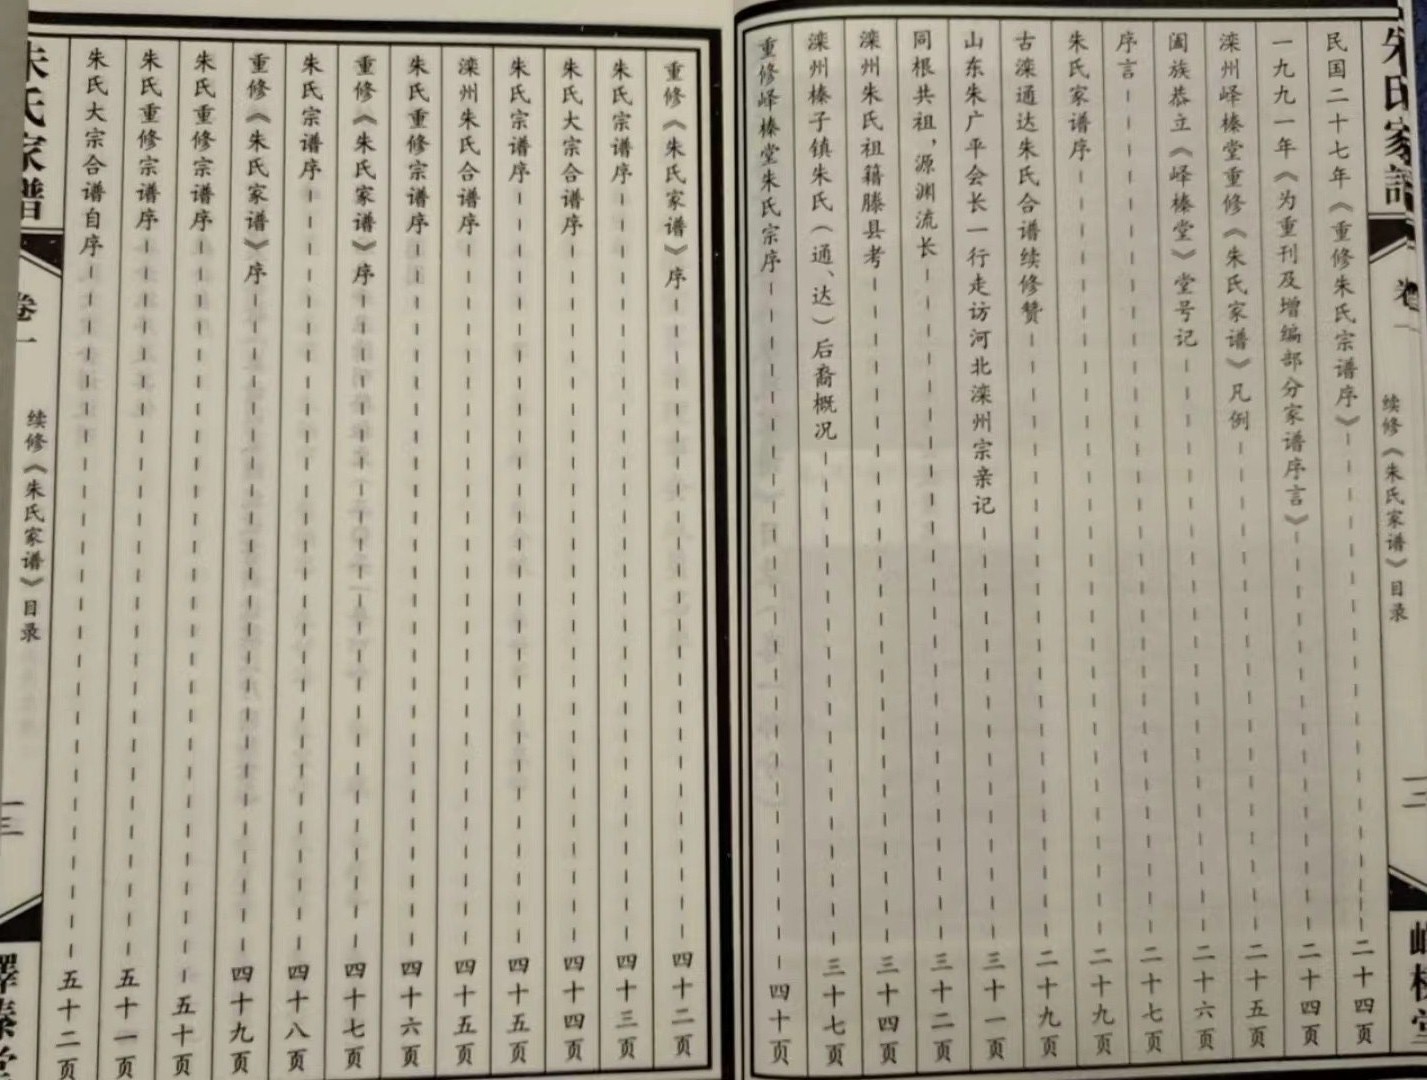 续修《朱氏家谱》目录
民国二十七年《重修朱氏宗谱序》二十四页
一九九一年《为重刊及增编部分家谱序言》二十四页
滦州峄榛堂重修《朱氏家谱》凡例二十五页
阖族恭立《峄榛堂》堂号记二十六页
序言二十七页
朱氏家谱序二十九页
古滦通达朱氏合谱续修赞二十九页
山东朱广平会长一行走访河北滦州宗亲记三十一页
同根共祖，源渊流长三十二页
滦州朱氏祖籍滕县考三十四页
滦州榛子镇朱氏（通、达）后裔概况三十七页
重修峄榛堂朱氏宗序四十页
重修《朱氏家谱》序四十二页
朱氏宗谱序四十三页
朱氏大宗合谱序四十四页
朱氏宗谱序四十五页
滦州朱氏合谱序四十五页
朱氏重修宗谱序四十六页
重修《朱氏家谱》序四十七页
朱氏宗谱序四十八页
重修《朱氏家谱》序四十九页
朱氏重修宗谱序五十页
朱氏重修宗谱序五十一页
朱氏大宗合谱自序五十二页
朱氏家谱
卷一
续修《朱氏家谱》目录